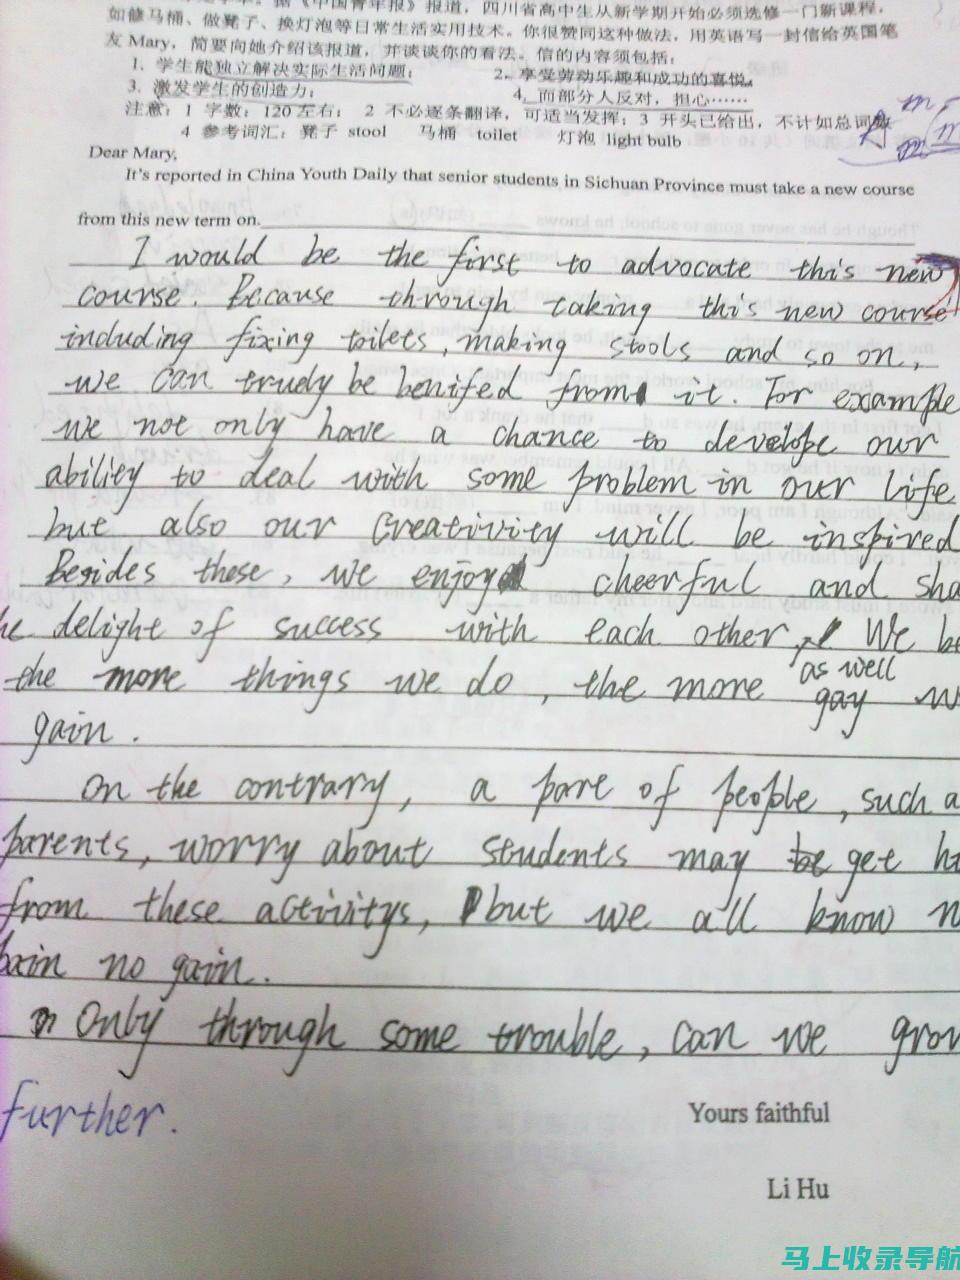 报道，四川省高中生从新学期开始必须选修一门新课程，
如修马桶、做凳子、换灯泡等日常生活实用技术。你很赞同这种做法，用英语写一封信给英国笔
友 Mary，简要向她介绍该报道，并谈谈你的看法。信的内容须包括：
1、学生能独立解决实际生活问题； 2、享受劳动乐趣和成功的喜悦
3、激发学生的创造力； 4、而部分人反对，担心……
注意：1 字数：120 左右； 2 不必逐条翻译，可适当发挥；3 开头已给出，不计如总词数
4 参考词汇：凳子 stool 马桶 toilet 灯泡 light bulb
Dear Mary,
It's reported in China Youth Daily that senior students in Sichuan Province must take a new course
from this new term on.
I would be the first to advocate this new
course. Because through taking this new course
including fixing toilets, making stools and so on,
we can truely be benifed from it. For example
we not only have a chance to develope our
ability to deal with some problem in our life
but also our creativity will be inspired
Besides these, we enjoy cheerful and sha
he delight of success with each other, We be
the more things we do, the more gay as well w
gain.
On the contrary, a part of people, such a
parents, worry about students may get hu
from these activitys, but we all know n
pain no gain.
Only through some trouble, can we grow
further.
Yours faithful
Li Hu
马上收录导航